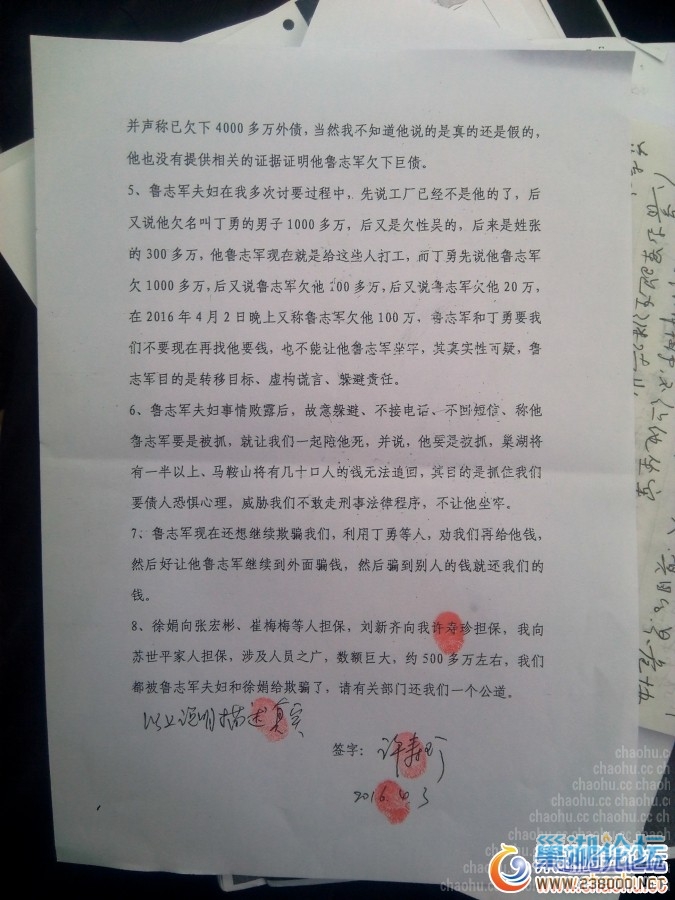 并声称已欠下 4000 多万外债，当然我不知道他说的是真的还是假的，
他也没有提供相关的证据证明他鲁志军欠下巨债。
5、鲁志军夫妇在我多次讨要过程中，先说工厂已经不是他的了，后
又说他欠名叫丁勇的男子 1000 多万，后又是欠性吴的，后来是姓张
的 300 多万，他鲁志军现在就是给这些人打工，而丁勇先说他鲁志军
欠 1000 多万，后又说鲁志军欠他 200 多万，后又说鲁志军欠他 20 万，
在 2016 年 4 月 2 日晚上又称鲁志军欠他 100 万、鲁志军和丁勇要我
们不要现在再找他要钱，也不能让他鲁志军坐牢，其真实性可疑，鲁
志军目的是转移目标、虚构谎言、躲避责任。
6、鲁志军夫妇事情败露后，故意躲避、不接电话、不回短信、称他
鲁志军要是被抓，就让我们一起陪他死，并说，他要是被抓，巢湖将
有一半以上、马鞍山将有几十口人的钱无法追回，其目的是抓住我们
要债人恐惧心理，威胁我们不敢走刑事法律程序，不让他坐牢。
7、鲁志军现在还想继续欺骗我们，利用丁勇等人，劝我们再给他钱，
然后好让他鲁志军继续到外面骗钱，然后骗到别人的钱就还我们的
钱。
8、徐娟向张宏彬、崔梅梅等人担保，刘新齐向我许寿珍担保，我向
苏世平家人担保，涉及人员之广，数额巨大，约 500 多万左右，我们
都被鲁志军夫妇和徐娟给欺骗了，请有关部门还我们一个公道。
以上说明描述真实
签字：许寿珍
2016.4.3
chaohu.cc
chaohu.cc chaohu.cc
巢湖论坛
www.238000.NET